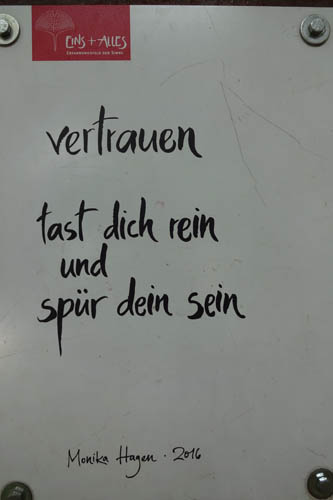 EINS + ALLES
ERFAHRUNGSFELD DER SINNE
vertrauen
tast dich rein
und
spür dein sein
Monika Hagen · 2016